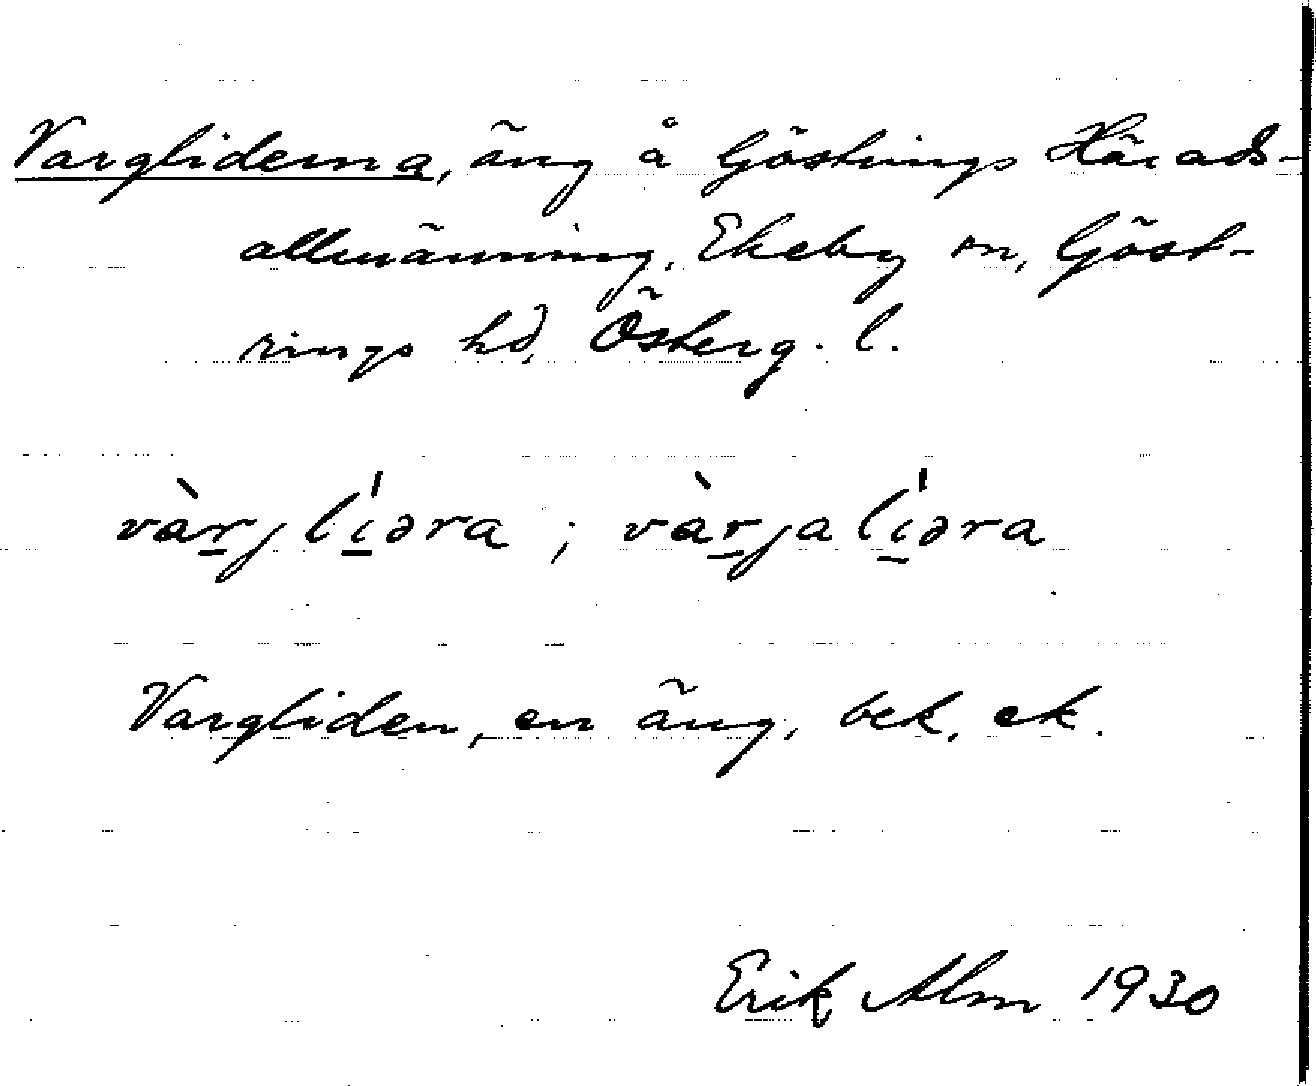 Vargliderna, äng å Göstrings Härads-
allmänning, Ekeby sn, Göst-
rings hd, Österg. l.
vàrjlíəra ; vàrjalíəra
Vargliden, en äng, bek. ek.
Erik Alm 1930